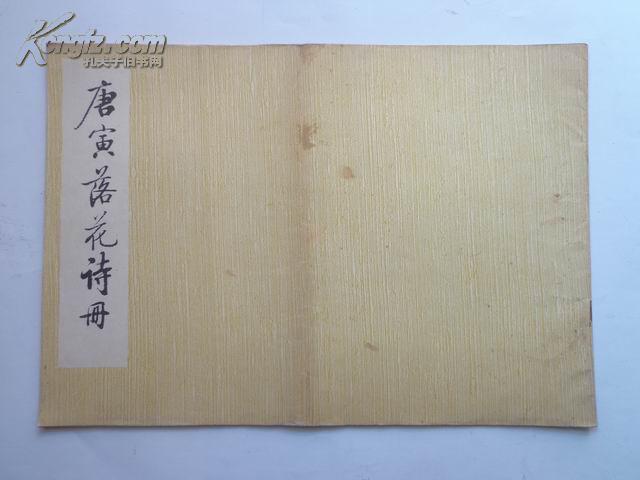 Kongfz.com
孔夫子旧书网
唐寅落花诗册